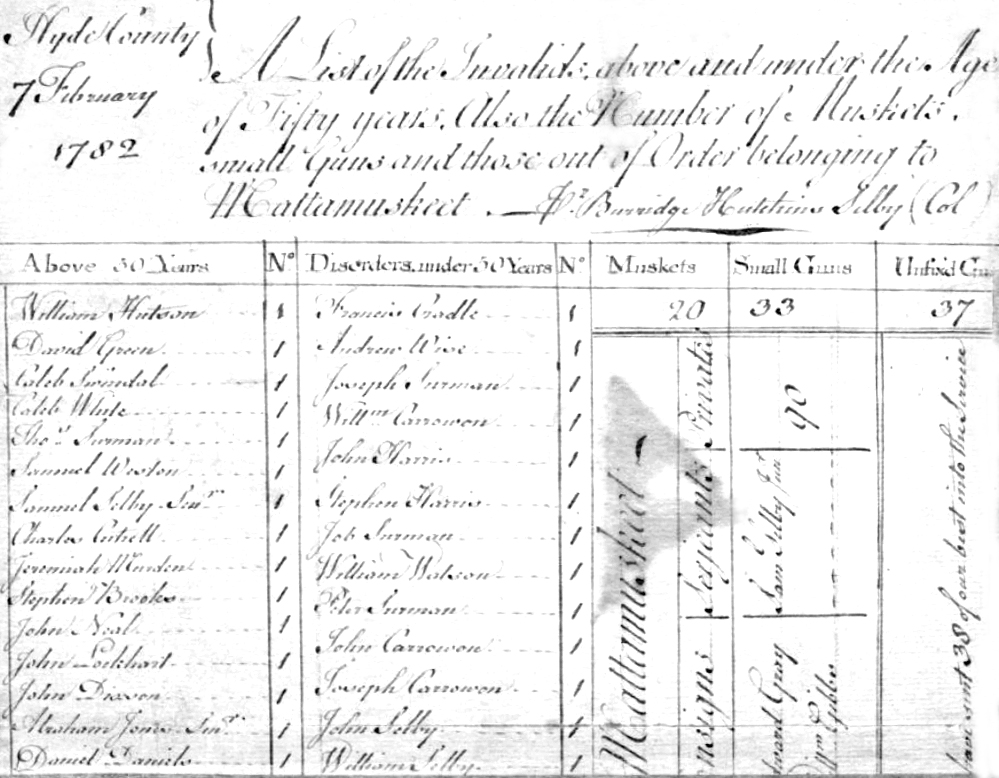 Hyde County
7 February
1782
A List of the Invalids, above and under the Age
of Fifty years. Also the Number of Muskets,
small Guns and those out of Order belonging to
Mattamuskeet — Pr. Burridge Hutchins Selby (Col)
Above 50 Years No. Disorders, under 50 Years No. Muskets Small Guns Unfixd Gu
William Hutson 1 Francis Credle 1 20 33 37
David Green 1 Andrew Wise 1
Caleb Swindal 1 Joseph Surman 1
Caleb White 1 Willm Carrowon 1
Thos Surman 1 John Harris 1
Samuel Weston 1 Stephen Harris 1
Samuel Selby Senr 1 Job Surman 1
Charles Cutrell 1 William Watson 1
Jeremiah Murden 1 Peter Surman 1
Stephen Brooks 1 John Carrowon 1
John Neal 1 Joseph Carrowon 1
John Lockhart 1 John Selby 1
John Dixson 1 William Selby 1
Abraham Jones Senr 1
Daniel Daniels 1
Mattamuskeet
nsigns Serjeants Privates
Gray
Wm Gibbs
Sam Selby Junr
90
sent 38 of our best into the Service